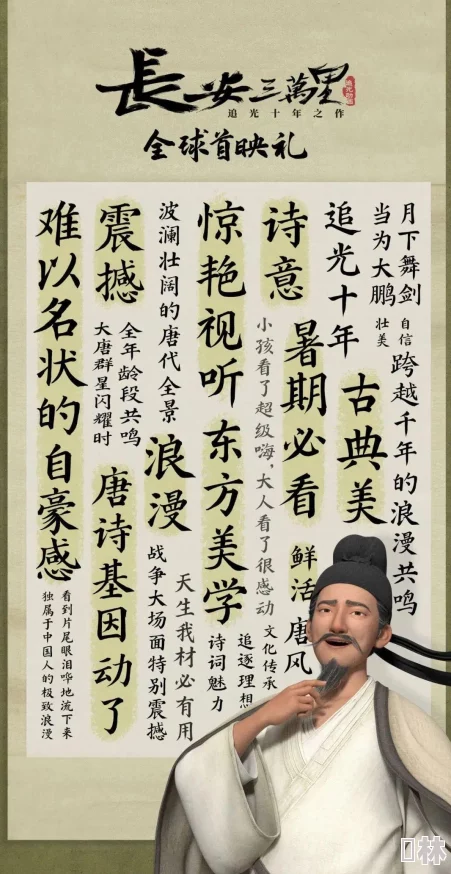 長安三萬里
追光动画
追光十年之作
全球首映礼
月下舞剑
当为大鹏
自信
壮美
跨越千年的浪漫共鸣
追光十年
古典美
诗意
暑期必看
鲜活唐风
小孩看了超级嗨，大人看了很感动
文化传承
追逐理想
诗词魅力
惊艳视听
东方美学
波澜壮阔的唐代全景
浪漫
天生我材必有用
战争大场面特别震撼
震撼
全年龄段共鸣
大唐群星闪耀时
唐诗基因动了
难以名状的自豪感
看到片尾眼泪哗地流下来
独属于中国人的极致浪漫
林